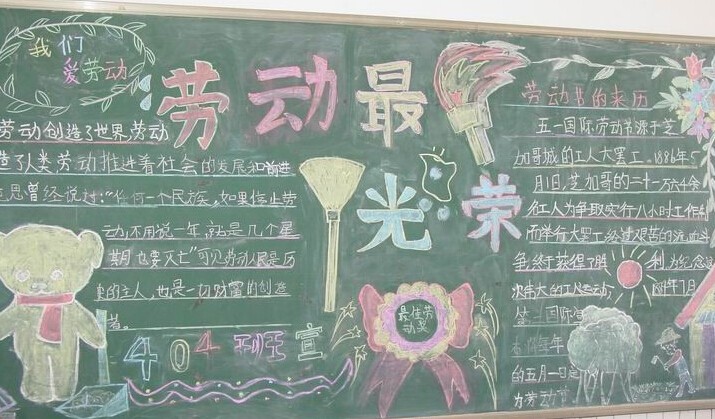 我们
爱劳动
劳动最
光荣
劳动创造了世界,劳动
造了人类劳动推进着社会的发展和前进
思曾经说过:"任何一个民族,如果停止劳
动,不用说一年,就是几个星
期也要灭亡"可见劳动人民是历
的主人,也是一切财富的创造
者。
404班宣
最佳劳
动奖
劳动节的来历
五一国际劳动节源于芝
加哥城的工人大罢工.1886年5
月1日,芝加哥的二十一万六千余
名工人为争取实行八小时工作制
而举行大罢工经过艰苦的流血斗
争,终于获得了胜利为纪念这
次伟大的工人运动
年7月
第二国际
每年
的五月一日定
为劳动节